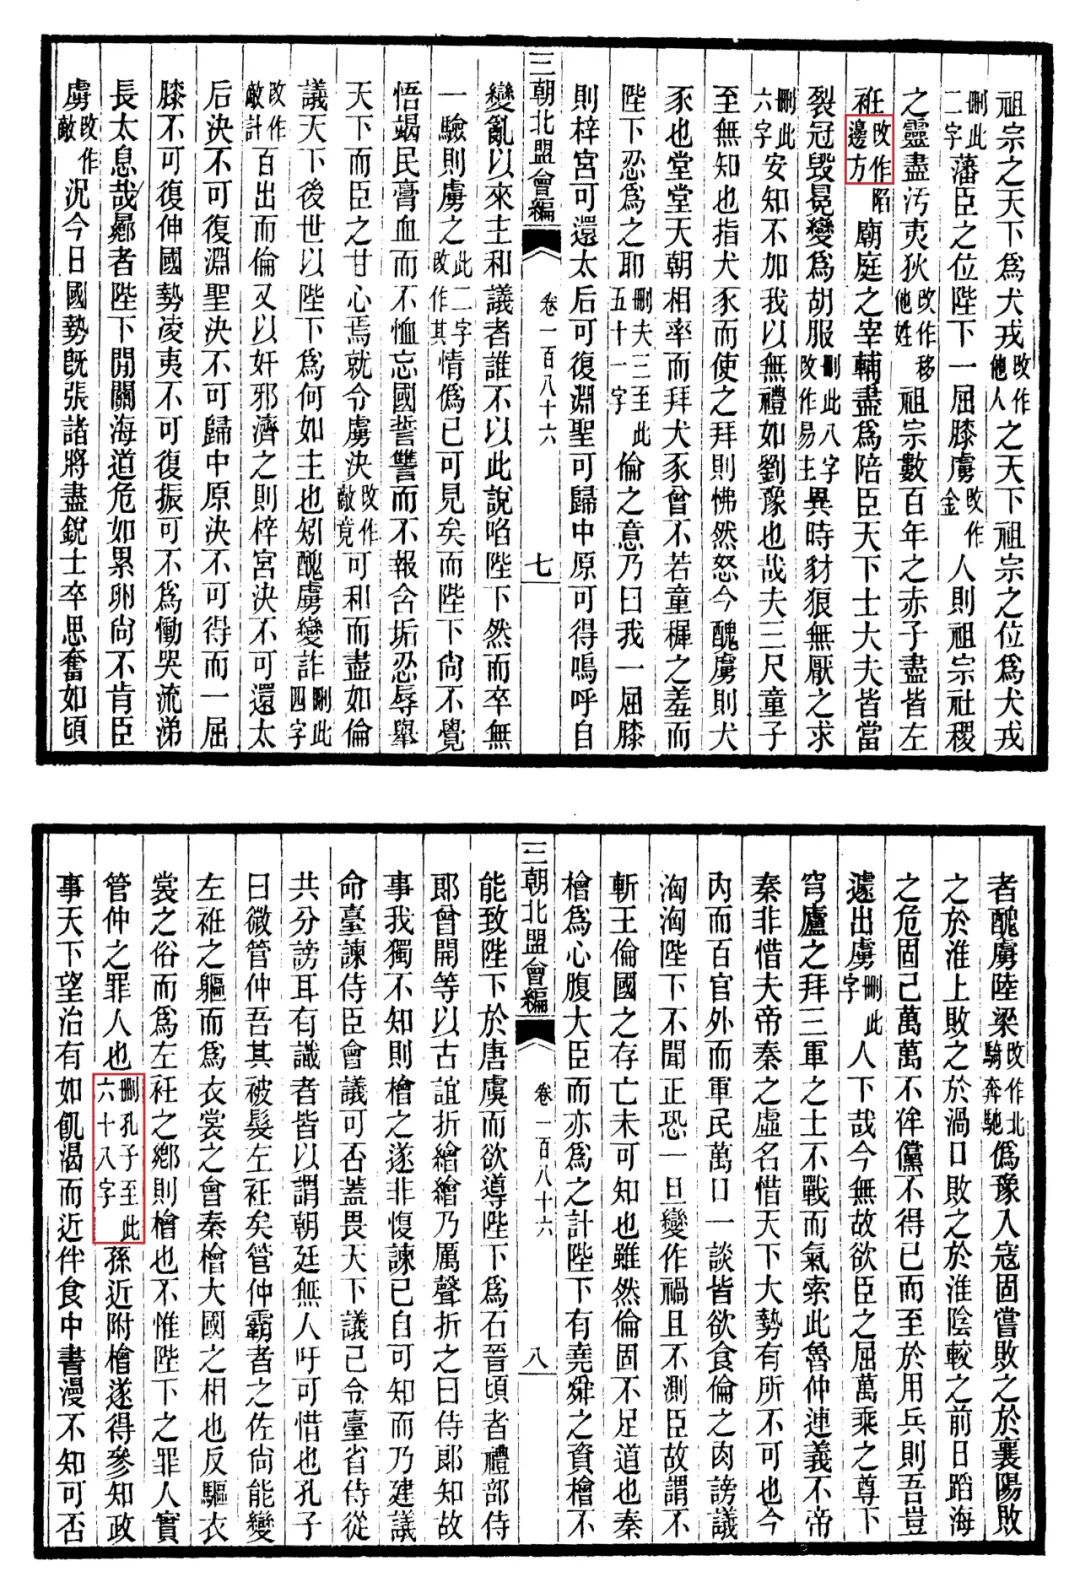 祖宗之天下爲犬戎改作他人之天下祖宗之位爲犬戎
刪此二字藩臣之位陛下一屈膝虜改作金人則祖宗社稷
之靈盡汚夷狄改作他姓移祖宗數百年之赤子盡皆左
袵改作陷邊方廟庭之宰輔盡爲陪臣天下士大夫皆當
裂冠毀冕變爲胡服刪此八字改作易主異時豺狼無厭之求
刪此六字安知不加我以無禮如劉豫也哉夫三尺童子
至無知也指犬豕而使之拜則怫然怒今醜虜則犬
豕也堂堂天朝相率而拜犬豕曾不若童穉之羞而
陛下忍爲之耶刪夫三至此五十一字倫之意乃曰我一屈膝
則梓宮可還太后可復淵聖可歸中原可得嗚呼自
三朝北盟會編 卷一百八十六 七
變亂以來主和議者誰不以此說啗陛下然而卒無
一驗則虜之此二字改作其情僞已可見矣而陛下尙不覺
悟竭民膏血而不恤忘國讐而不報含垢忍辱舉
天下而臣之甘心焉就令虜決改作敵竟可和而盡如倫
議天下後世以陛下爲何如主也矧醜虜變詐刪此四字
改作敵計百出而倫又以奸邪濟之則梓宮決不可還太
后決不可復淵聖決不可歸中原決不可得而一屈
膝不可復伸國勢凌夷不可復振可不爲慟哭流涕
長太息哉曏者陛下閒關海道危如累卵尙不肯臣
虜改作敵況今日國勢旣張諸將盡銳士卒思奮如頃
者醜虜陸梁改作北騎奔馳僞豫入寇固嘗敗之於襄陽敗
之於淮上敗之於渦口敗之於淮陰較之前日蹈海
之危固已萬萬不侔儻不得已而至於用兵則吾豈
遽出虜刪此字人下哉今無故欲臣之屈萬乘之尊下
穹廬之拜三軍之士不戰而氣索此魯仲連義不帝
秦非惜夫帝秦之虛名惜天下大勢有所不可也今
內而百官外而軍民萬口一談皆欲食倫之肉謗議
洶洶陛下不聞正恐一旦變作禍且不測臣故謂不
斬王倫國之存亡未可知也雖然倫固不足道也秦
檜爲心腹大臣而亦爲之計陛下有堯舜之資檜不
三朝北盟會編 卷一百八十六 八
能致陛下於唐虞而欲導陛下爲石晉頃者禮部侍
郎曾開等以古誼折繪繪乃厲聲折之曰侍郎知故
事我獨不知則檜之遂非愎諫已自可知而乃建議
命臺諫侍臣會議可否蓋畏天下議已令臺省侍從
共分謗耳有識者皆以謂朝廷無人吁可惜也孔子
曰微管仲吾其被髮左衽矣管仲霸者之佐尙能變
左袵之軀而爲衣裳之會秦檜大國之相也反驅衣
裳之俗而爲左衽之鄕則檜也不惟陛下之罪人實
管仲之罪人也刪孔子至此六十八字孫近附檜遂得參知政
事天下望治有如飢渴而近伴食中書漫不知可否